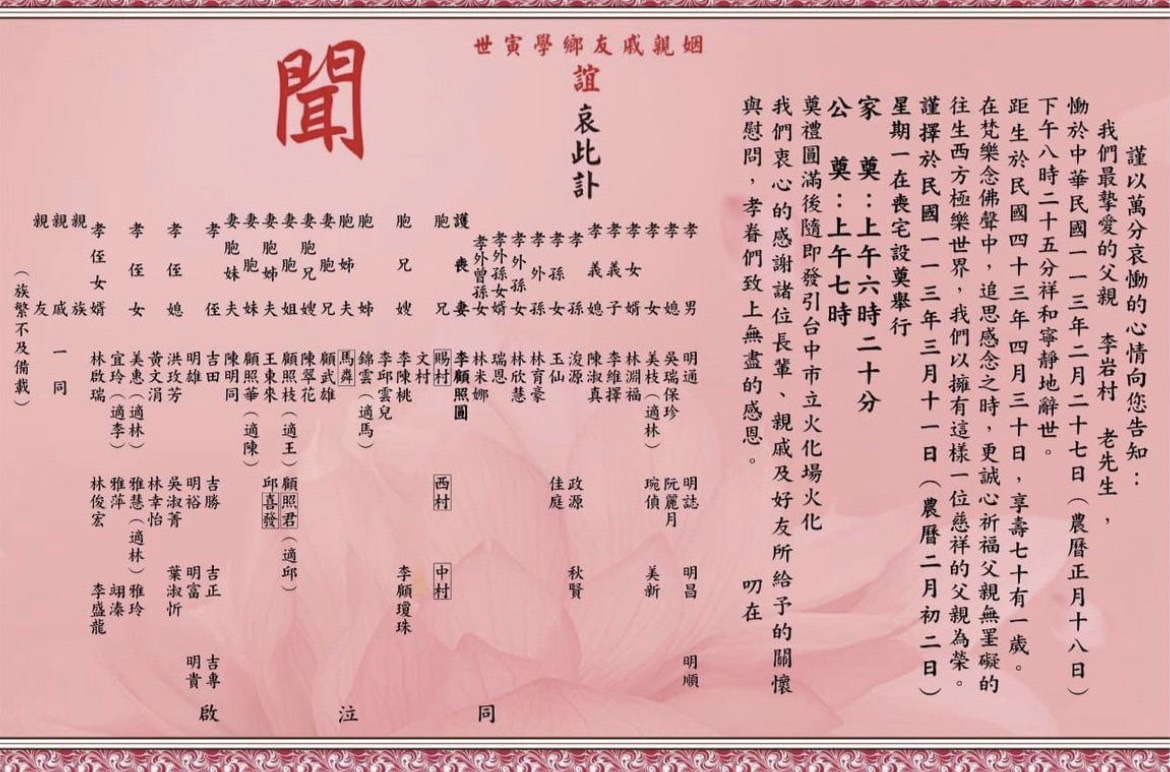 謹以萬分哀慟的心情向您告知：
我們最摯愛的父親 李岩村 老先生，
慟於中華民國一一三年二月二十七日（農曆正月十八日）
下午八時二十五分祥和寧靜地辭世。
距生於民國四十三年四月三十日，享壽七十有一歲。
在梵樂念佛聲中，追思感念之時，更誠心祈福父親無罣礙的
往生西方極樂世界，我們以擁有這樣一位慈祥的父親為榮。
謹擇於民國一一三年三月十一日（農曆二月初二日）
星期一在喪宅設奠舉行
家 奠：上午六時二十分
公 奠：上午七時
奠禮圓滿後隨即發引台中市市立火化場火化
我們衷心的感謝諸位長輩、親戚及好友所給予的關懷
與慰問，孝眷們致上無盡的感恩。 叨在
姻親戚友鄉學寅世
誼 哀此訃
聞
孝男 明通 明誌 明昌 明順
孝媳 吳瑞保珍 阮麗月
孝女 美枝（適林） 琬偵 美新
孝女婿 林淵福
孝義子 李維擇
孝義媳 陳淑真
孝孫 浚源 政源 秋賢
孝孫女 玉仙 佳庭
孝外孫 林育豪
孝外孫女 林欣慧
孝外孫女婿 瑞恩
孝外曾孫女 林米娜
護喪妻 李顧照圓
胞兄 賜村 西村 中村
文村
胞兄嫂 李陳桃 李顧瓊珠
李邱雲兒
胞姊 錦雲（適馬）
胞姊夫 馬舜
妻胞兄 顧武雄
妻胞兄嫂 陳翠花
妻胞姐 顧照枝（適王） 顧照君（適邱）
妻胞姊夫 王東來 邱喜發
妻胞妹 顧照華（適陳）
妻胞妹夫 陳明同
孝侄 吉田 吉勝 吉正 吉專
明雄 明裕 明富 明貴
孝侄媳 洪玫芳 吳淑菁 葉淑忻
黃文涓 林幸怡
孝侄女 美惠（適林） 雅慧（適林） 雅玲
宜玲（適李） 雅萍 翊溱
孝侄女婿 林啟瑞 林俊宏 李盛龍
親族
親戚 一同
親友
（族繁不及備載）
同泣啟